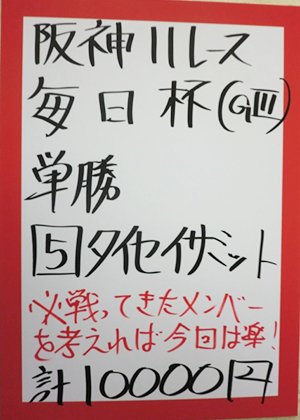 阪神11レース
毎日杯(GⅢ)
単勝
5タイセイサミット
※戦ってきたメンバー
を考えれば今回は楽!
計10000円